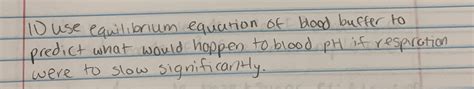 1) use equilibrium equation of blood buffer to
predict what would happen to blood pH if respiration
were to slow significantly.